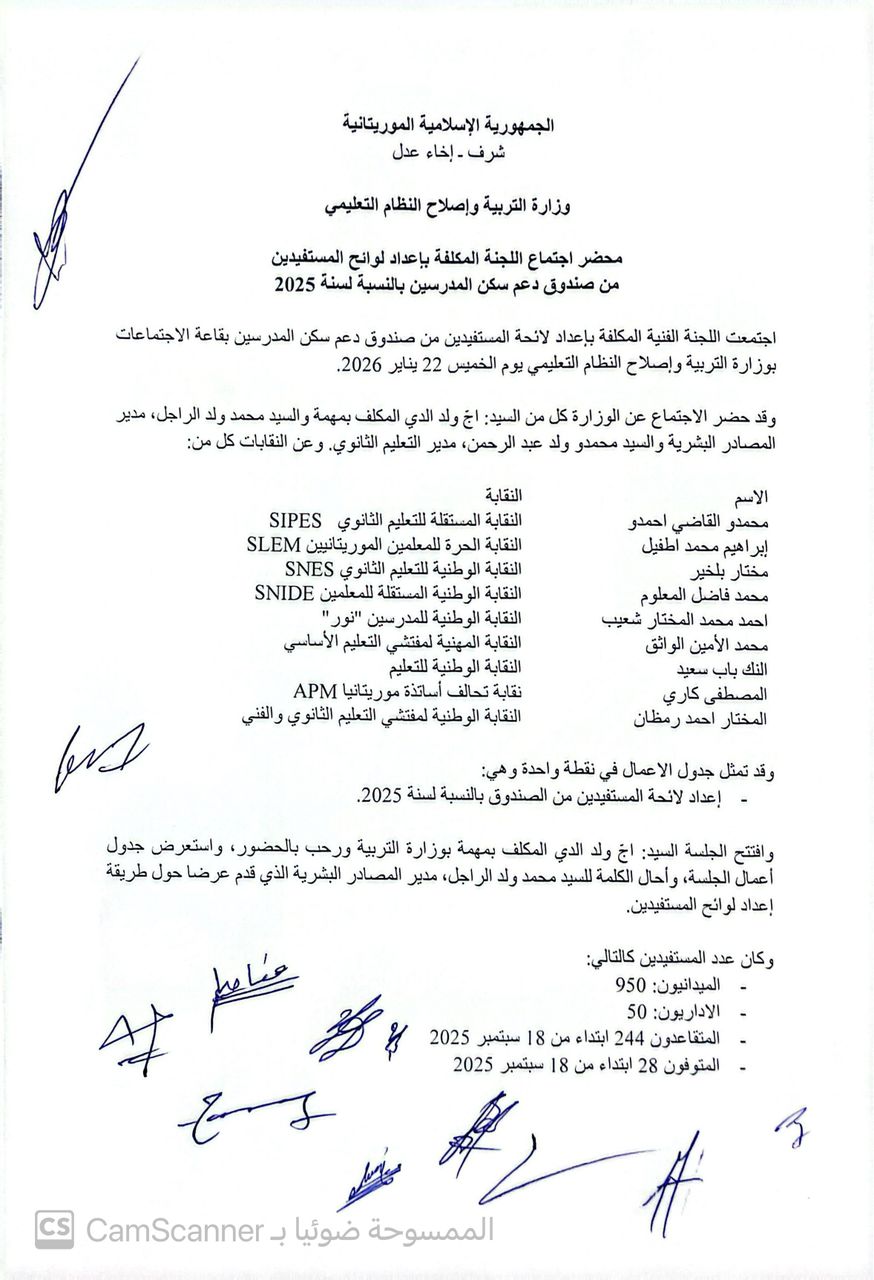 الجمهورية الإسلامية الموريتانية
شرف ـ إخاء عدل
وزارة التربية وإصلاح النظام التعليمي
محضر اجتماع اللجنة المكلفة بإعداد لوائح المستفيدين
من صندوق دعم سكن المدرسين بالنسبة لسنة 2025
اجتمعت اللجنة الفنية المكلفة بإعداد لائحة المستفيدين من صندوق دعم سكن المدرسين بقاعة الاجتماعات
بوزارة التربية وإصلاح النظام التعليمي يوم الخميس 22 يناير 2026.
وقد حضر الاجتماع عن الوزارة كل من السيد: اجّ ولد الدي المكلف بمهمة والسيد محمد ولد الراجل، مدير
المصادر البشرية والسيد محمدو ولد عبد الرحمن، مدير التعليم الثانوي. وعن النقابات كل من:
الاسم النقابة
محمدو القاضي احمدو النقابة المستقلة للتعليم الثانوي SIPES
إبراهيم محمد اطفيل النقابة الحرة للمعلمين الموريتانيين SLEM
مختار بلخير النقابة الوطنية للتعليم الثانوي SNES
محمد فاضل المعلوم النقابة الوطنية المستقلة للمعلمين SNIDE
احمد محمد المختار شعيب النقابة الوطنية للمدرسين "نور"
محمد الأمين الواثق النقابة المهنية لمفتشي التعليم الأساسي
النك باب سعيد النقابة الوطنية للتعليم
المصطفى كاري نقابة تحالف أساتذة موريتانيا APM
المختار احمد رمظان النقابة الوطنية لمفتشي التعليم الثانوي والفني
وقد تمثل جدول الاعمال في نقطة واحدة وهي:
- إعداد لائحة المستفيدين من الصندوق بالنسبة لسنة 2025.
وافتتح الجلسة السيد: اجّ ولد الدي المكلف بمهمة بوزارة التربية ورحب بالحضور، واستعرض جدول
أعمال الجلسة، وأحال الكلمة للسيد محمد ولد الراجل، مدير المصادر البشرية الذي قدم عرضا حول طريقة
إعداد لوائح المستفيدين.
وكان عدد المستفيدين كالتالي:
- الميدانيون: 950
- الاداريون: 50
- المتقاعدون 244 ابتداء من 18 سبتمبر 2025
- المتوفون 28 ابتداء من 18 سبتمبر 2025
CS الممسوحة ضوئيا بـ CamScanner